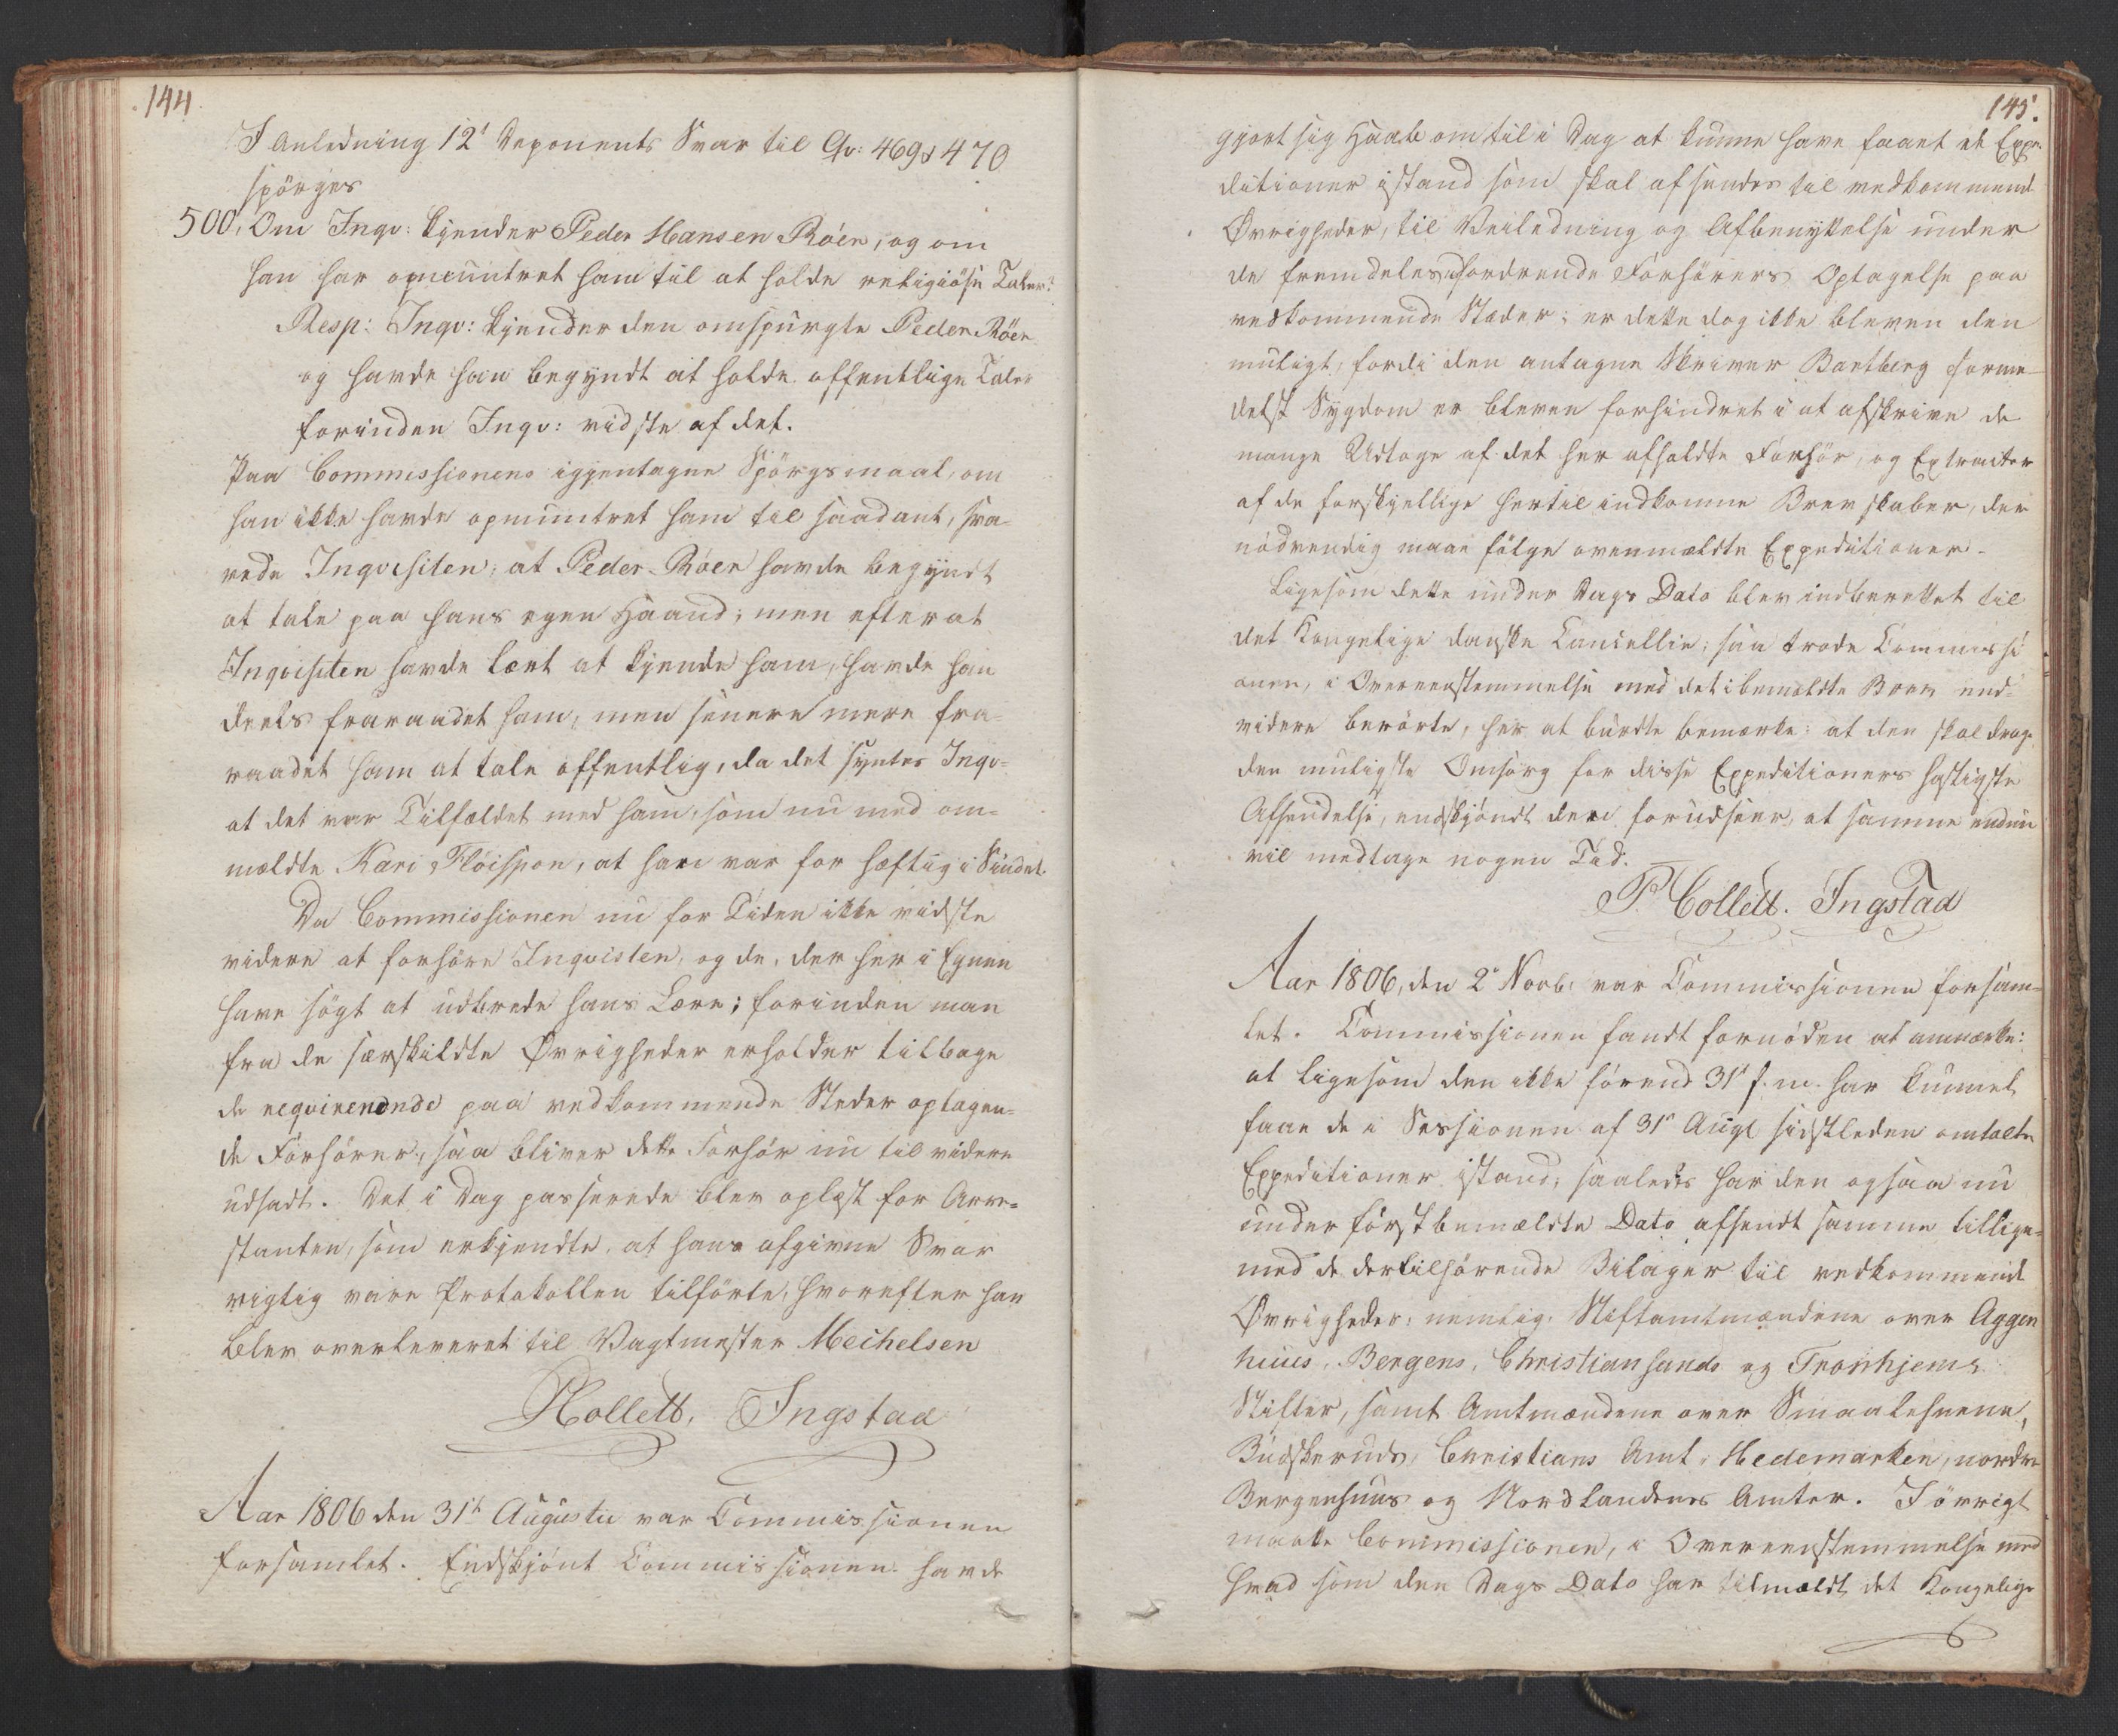 144.
I Anledning 12t Deponents Svar til Qv: 469 & 470
spörges
500, Om Inqv: kjender Peder Hansen Röer, og om
han har opmuntret ham til at holde religiöse Taler?
Resp: Inqv: kjender den omspurgte Peder Röer
og havde han begyndt at holde offentlige Taler
forinden Inqv: vidste af det.
Paa Commissionens iggjentagne Spörgsmaal, om
han ikke havde opmuntret ham til saadant, sva-
rede Inqvisiten, at Peder Röer havde begyndt
at tale paa hans egen Haand; men efter at
Inqvisiten havde lært at kjende ham, havde han
deels fraraadet ham, men senere mere fra-
raadet ham at tale offentlig, da det syntes Inqv-
at det var Tilfældet med ham, som nu med om-
mældte Kari Flöispon, at han var for hæftig i Sindet.
Da Commissionen nu for Tiden ikke vidste
videre at forhöre Inqvisten, og de, der her i Egnen
have sögt at udbrede hans Lære; forinden man
fra de særskildte Øvrigheder erholder tilbage
de reqvirerende paa vedkommende Steder optagen-
de Forhörer, saa bliver dette Forhör nu til videre
udsadt. Det i Dag passerede blev oplæst for Arre-
stanten, som erkjendte, at hans afgivne Svar
rigtig vare Protokollen tilförte, hvorefter han
blev overleveret til Vagtmester Meihelsen
PCollett. Ingstad
Aar 1806 den 31t Augustii var Commissionen
forsamlet. Endskjönt Commissionen havde
145.
gjort sig Haab om til i Dag at kunne have faaet de Expe-
ditioner istand som skal afsendes til vedkommende
Øvrigheder, til Veiledning og Afbenyttelse under
de fremdeles fordrende Forhörers Optagelse paa
vedkommende Stæder; er dette dog ikke bleven den
muligt, fordi den antagne Skriver Bartberg forme-
delst Sygdom er bleven forhindret i at afskrive de
mange Udtoge af det her afholdte Forhör, og Extracter
af de forskjellige hertil indkomne Brevskaber, der
nödvendig maae fölge ovenmældte Expeditioner.
Ligesom dette under Dags Dato blev indberettet til
det Kongelige danske Cancellie; saa troede Commissi
onen, i Overeenstemmelse med det i bemældte Brev end-
videre berörte, her at burdte bemærke: at den skal drage
den muligste Omsorg for disse Expeditioners hastigste
Afsendelse, endskjöndt den forudseer, at samme endnu
vil medtage nogen Tid.
P. Collett. Ingstad
Aar 1806, den 2n Novb: var Commissionen forsam-
let. Commissionen fandt fornöden at anmærke:
at ligesom den ikke förend 31t f. m. har kunnet
faae de i Sessionen af 31t Augt sidstleden omtalte
Expeditioner istand, saaledes har den ogsaa nu
under förstbemældte Dato afsendt samme tillige-
med de dertilhörende Bilager til vedkommende
Øvrigheder: nemlig: Stiftamtmændene over Aggers
huus, Bergens, Christiansands og Tronhjems
Stifter, samt Amtmændene over Smaalehnene,
Budskeruds, Christians Amt, Hedemarken, nordre
Bergenhuus og Nordlandenes Amter. I övrigt
maatte Commissionen, i Overeenstemmelse med
hvad som den Dags Dato har tilmældt det Kongelige